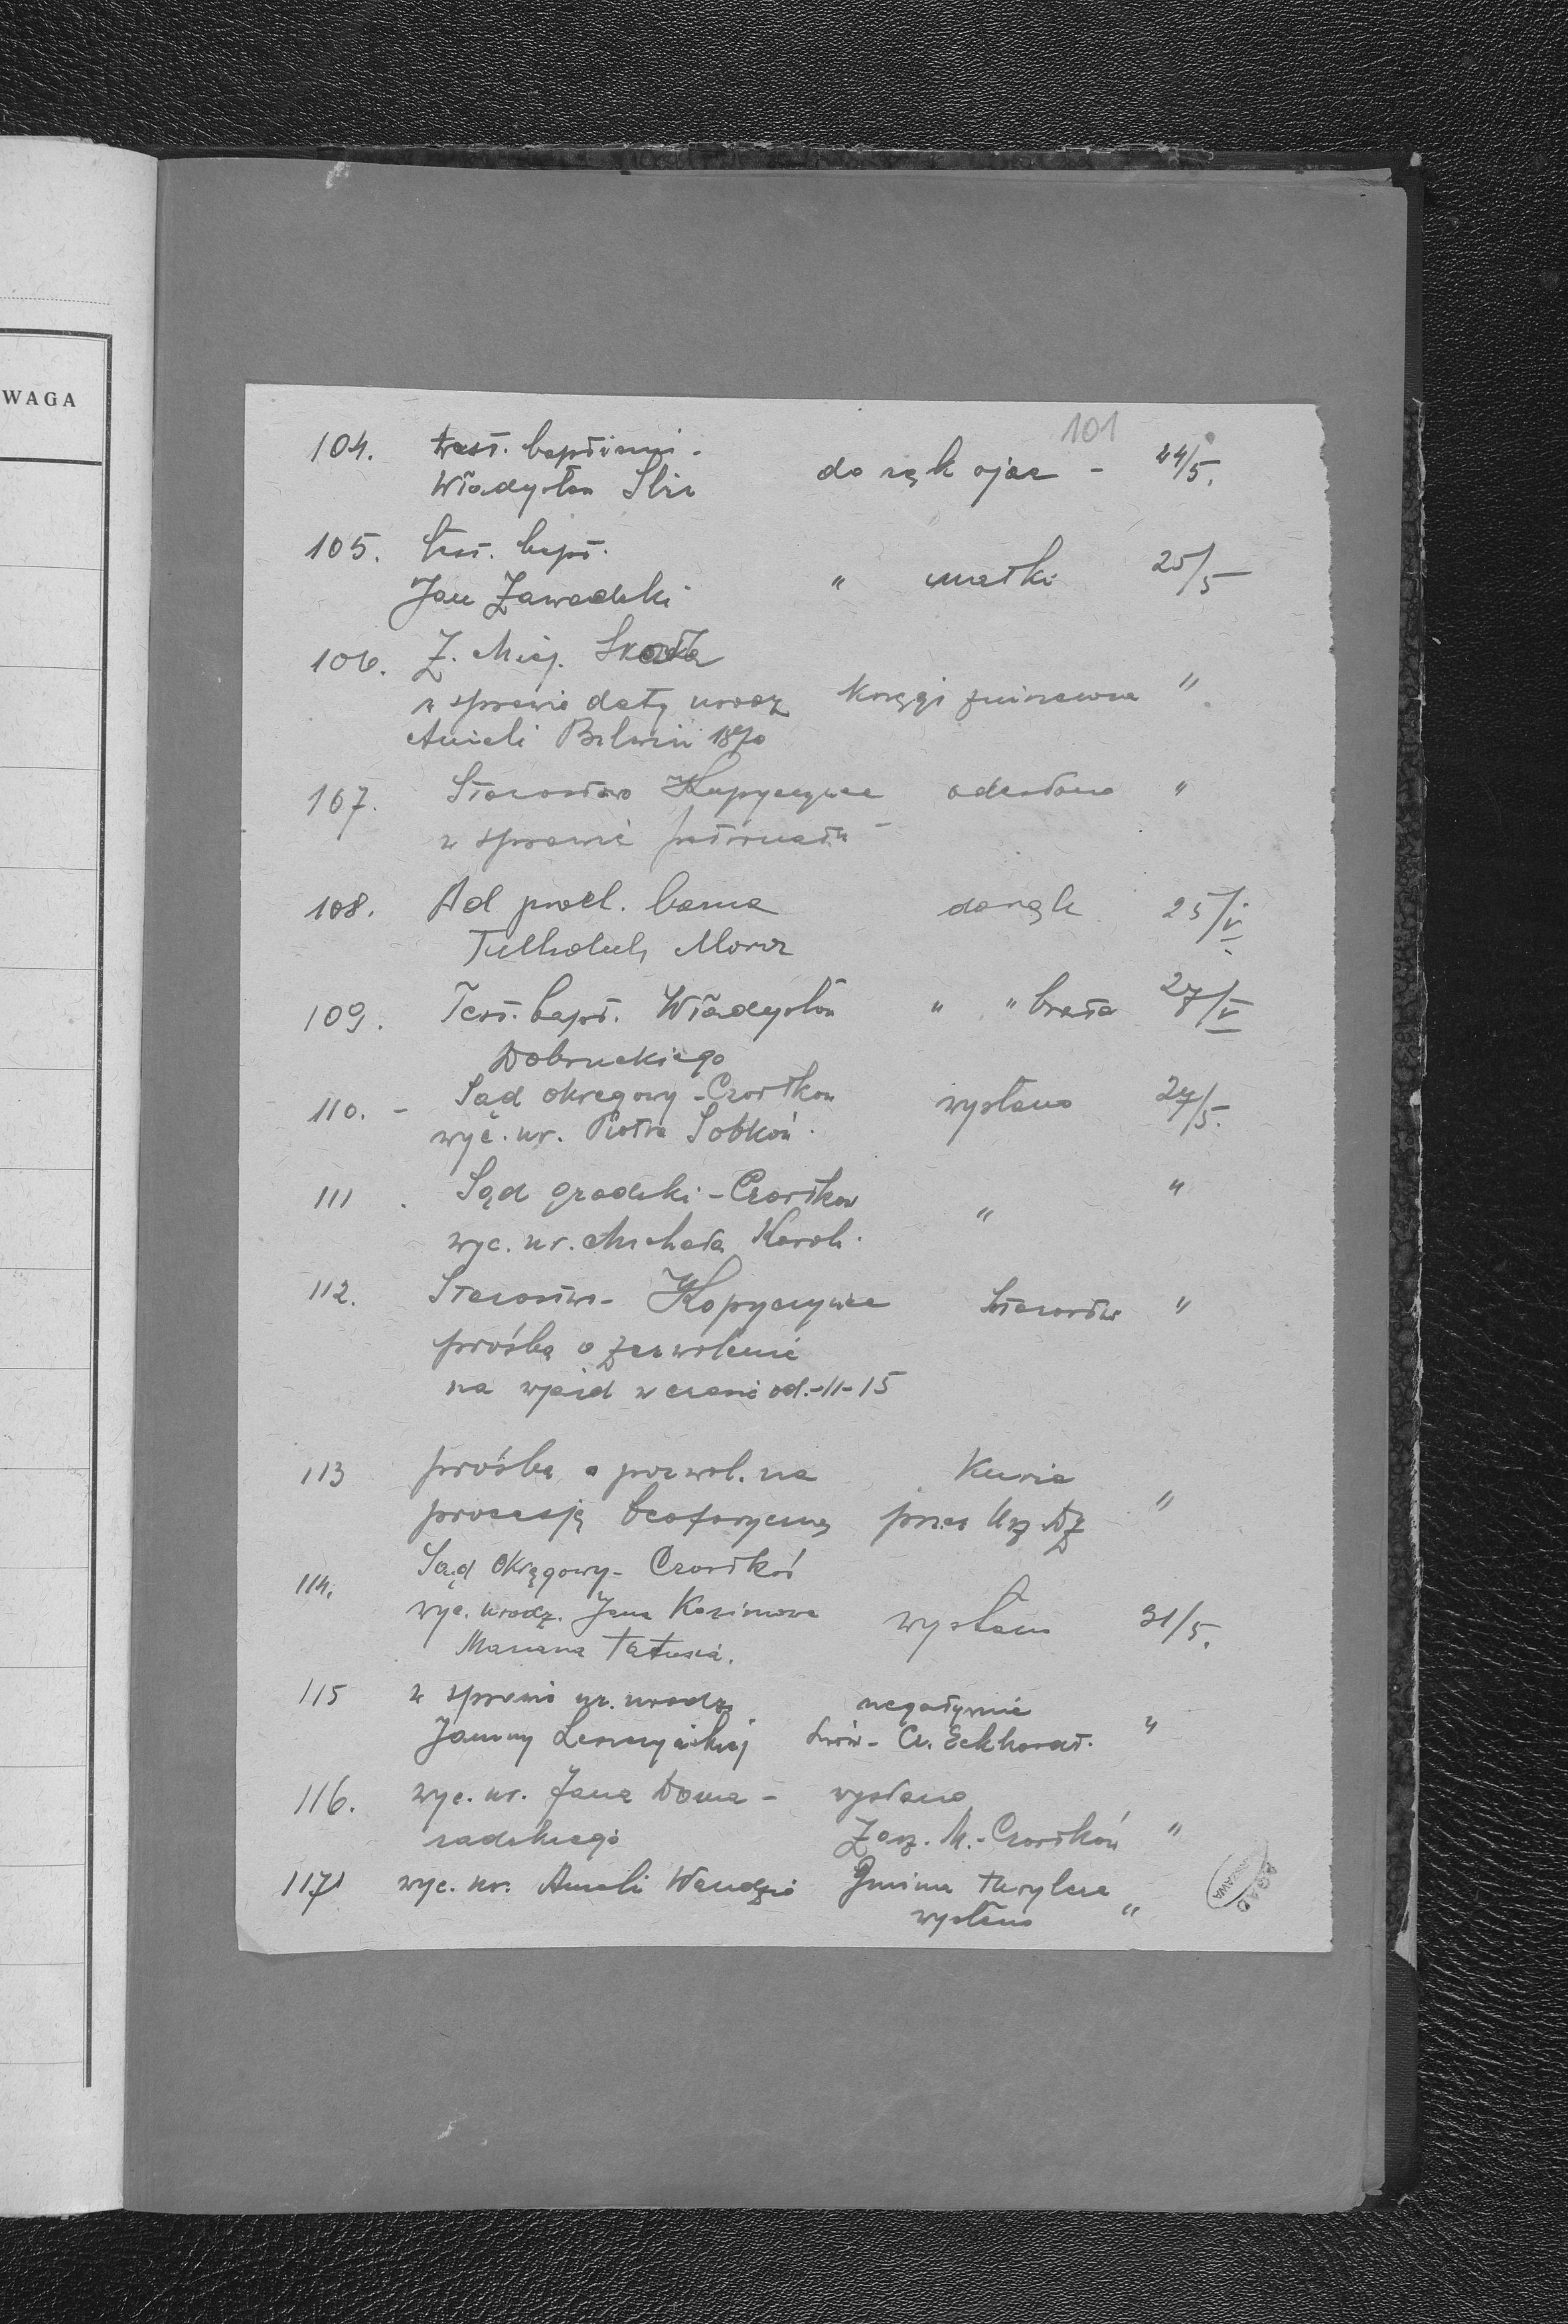 WAGA
101
104. test. baptismi -
Władysław Śliz do rąk ojca - 24/5.
105. test. bapt.
Jan Zawadzki " matki 25/5
106. Z. Miej. Skała
w sprawie daty urodz księgi zniszczone "
Anieli 1870
107. Starostwo Kopyczyńce odesłano "
w sprawie
108. Ad procl. banna do rąk 25/V
Moroz
109. Test. bapt. Władysław " " brata 27/V
Dobruckiego
110. - Sąd okręgowy - Czortków wysłano 27/5.
wyc. ur. Piotra Sobków.
111. Sąd grodzki - Czortków " "
wyc. ur. Michała Karol.
112. Starostwo - Kopyczyńce Starostwo "
prośba o zezwolenie
na wjazd w czasie od. - 11 - 15
113 prośba o pozwol. na Kuria
procesję teoforyczną przez Urz Dz "
Sąd Okręgowy - Czortków
114. wyc. urodz. Jana Kazimierza wysłano 31/5.
Mariana Tatusia.
115 w sprawie ur. urodz. negatywnie
Janiny Leszczyńskiej Lwów - Cz. Eckhardt. "
116. wyc. ur. Jana Doma - wysłano
radzkiego Zarz. M. - Czortków "
117 wyc. ur. Anieli Gmina
wysłano "
AGAD
WARSZAWA